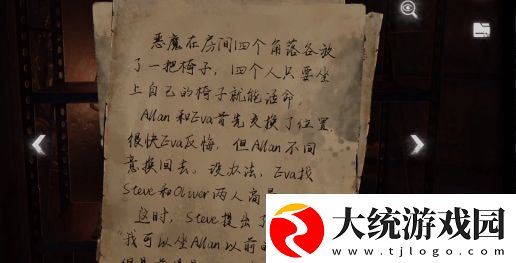 恶魔在房间四个角落各放
了一把椅子，四个人只要坐
上自己的椅子就能活命。
Allan和Eva首先交换了位置，
很快Eva反悔，但Allan不同
意换回去。没办法，Eva找
Steve和Oliver两人商量
这时，Steve提出了
“我可以坐Allan以前的
大统游戏园
www.tjlogo.com